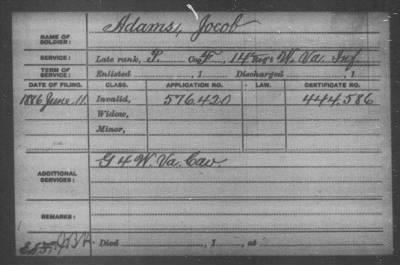 NAME OF SOLDIER: Adams, Jocob
SERVICE: Late rank, P. Co. F, 14 Reg't W. Va. Inf.
TERM OF SERVICE: Enlisted , 1 Discharged , 1
DATE OF FILING. CLASS. APPLICATION NO. LAW. CERTIFICATE NO.
1886 June 11 Invalid, 576.420 444.586
Widow,
Minor,
ADDITIONAL SERVICES: G 4 W. Va. Cav.
REMARKS:
Died , 1 , at